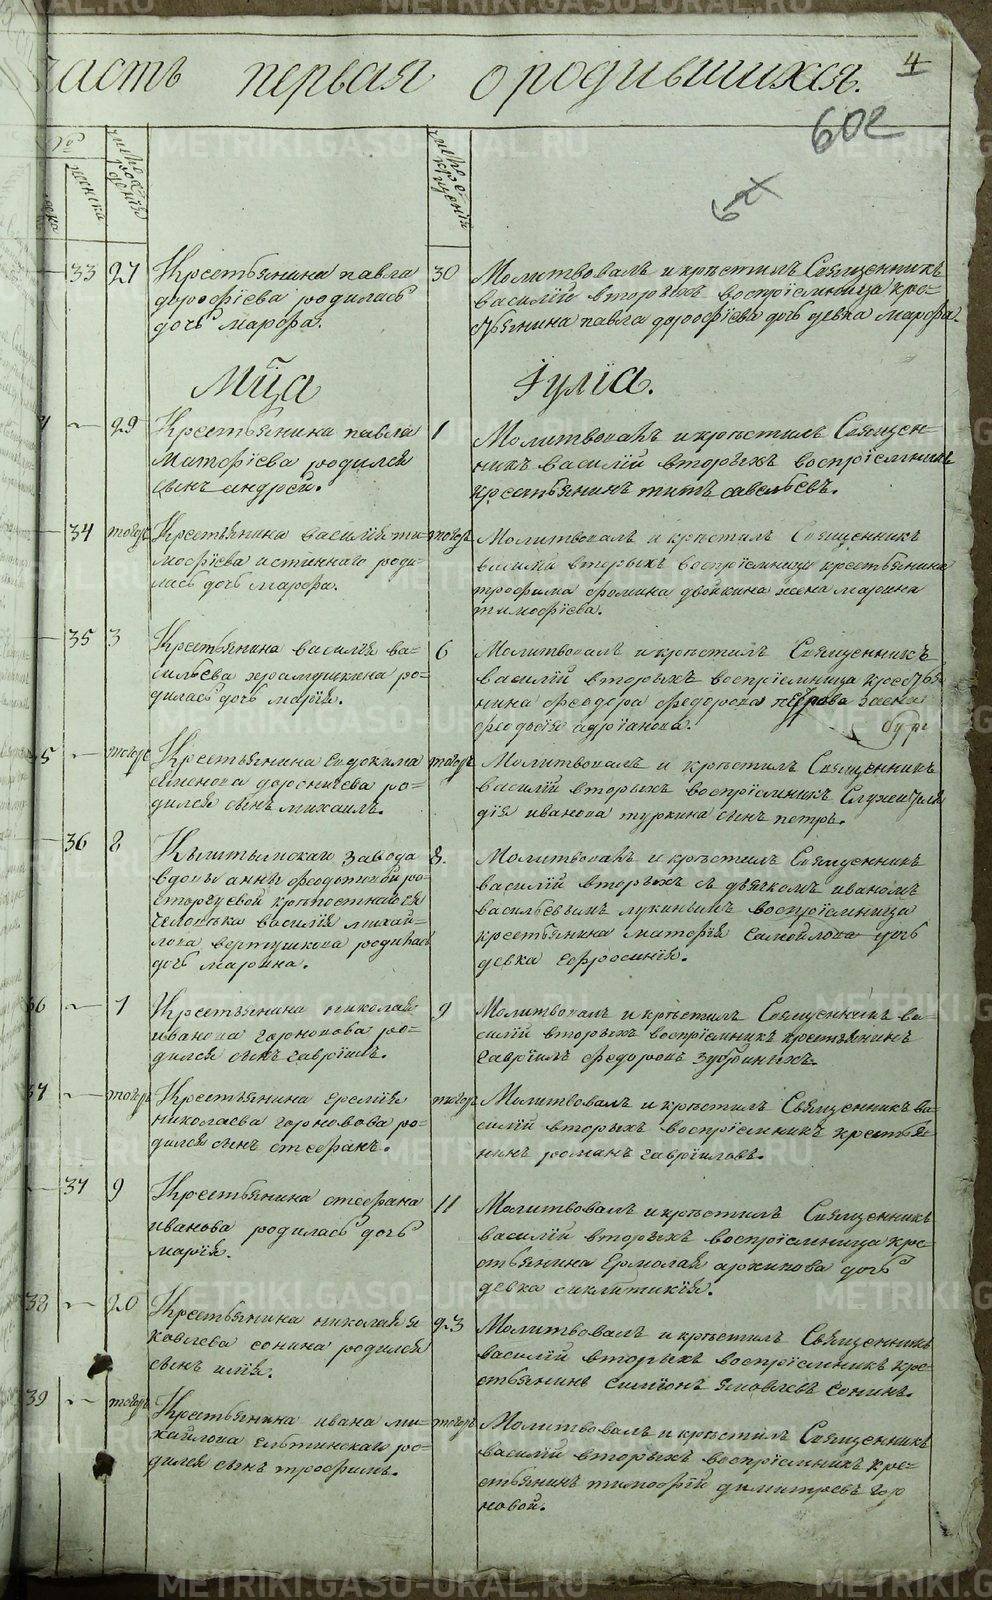 METRIKI.GASO-URAL.RU
часть первая о родившихся.
4
602
число рождения
число крещения
женска
33 27 Крестьянина павла дорофѣева родилась дочь марфа.
30 Молитвовалъ и крѣстилъ Священникъ василій вторыхъ воспріемница кре-
стьянина павла дорофѣева дочь девка марфа.
Мца Іулїа.
29 Крестьянина павла
Матфѣева родился
сынъ андрей.
1 Молитвовалъ и крѣстилъ Священ-
никъ василій вторыхъ воспріемникъ
крестьянинъ титъ савельевъ.
34 тогоже Крестьянина василія ти-
мофѣева истиннаго роди-
лась дочь марфа.
тогоже Молитвовалъ и крѣстилъ Священникъ
василій вторыхъ воспріемница крестьянина
трофима фомина двойкина жена марина
тимофѣева.
35 3 Крестьянина василія ва-
сильева храмушкина ро-
дилась дочь марія.
6 Молитвовалъ и крѣстилъ Священникъ
василій вторыхъ воспріемница кресть
нина федора федорова жена
феодосія адріанова.
35 тогоже Крестьянина Евдокима
семенова ро-
дился сынъ михаилъ.
тогоже Молитвовалъ и крѣстилъ Священникъ
василій вторыхъ воспріемникъ
иванова туркина сынъ петръ.
36 8 Кыштымскаго завода
вдовы анны федотовой ро-
сторгуевой крѣпостнаго
человѣка василія михай-
лова вертушкова родилась
дочь марина.
8. Молитвовалъ и крѣстилъ Священникъ
василій вторыхъ съ дьячкомъ иваномъ
васильевымъ лукинымъ воспріемница
крестьянина матфія самойлова дочь
девка ефросинія.
36 1 Крестьянина николая
иванова горновова ро-
дился сынъ гавріилъ.
9 Молитвовалъ и крѣстилъ Священникъ ва-
силій вторыхъ воспріемникъ крестьянинъ
гавріилъ федоровъ зубриныхъ.
37 тогоже Крестьянина еремія
николаева горновова ро-
дился сынъ стефанъ.
тогоже Молитвовалъ и крѣстилъ Священникъ ва-
силій вторыхъ воспріемникъ крестья-
нинъ романъ гавріиловъ.
37 9 Крестьянина стефана
иванова родилась дочь
марія.
11 Молитвовалъ и крѣстилъ Священникъ
василій вторыхъ воспріемница кре-
стьянина Ермолая архипова дочь
девка синклитикія.
38 20 Крестьянина николая я
ковлева сонина родился
сынъ илія.
23 Молитвовалъ и крѣстилъ Священникъ
василій вторыхъ воспріемникъ кре-
стьянинъ симіонъ яковлевъ сонинъ.
39 тогоже Крестьянина ивана ми-
хайлова ро-
дился сынъ трофимъ.
тогоже Молитвовалъ и крѣстилъ Священникъ
василій вторыхъ воспріемникъ кре-
стьянинъ тимофѣй димитріевъ гор
новой.